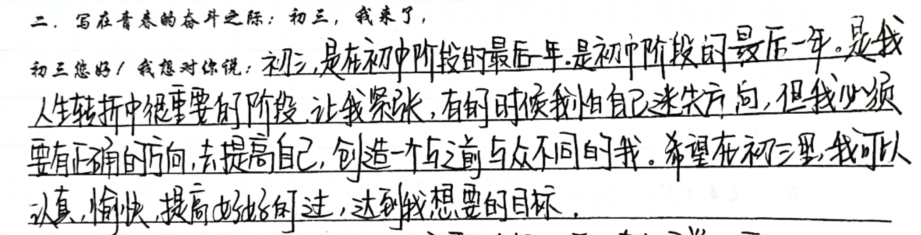 二、写在青春的奋斗之际：初三，我来了，
初三您好！我想对你说：初三，是在初中阶段的最后一年。是初中阶段的最后一年。是我
人生转折中很重要的阶段，让我紧张，有的时候我怕自己迷失方向，但我必须
要有正确的方向，去提高自己，创造一个与之前与众不同的我。希望在初三里，我可以
认真，愉快，提高好好的过，达到我想要的目标．